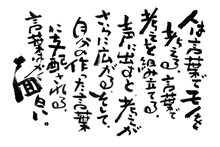 人は言葉でモノを
考える。言葉で
考えを組み立てる。
声に出すと考えが
さらに広がる。そして、
自分の作った言葉
に支配される。
言葉はだから
面白い。